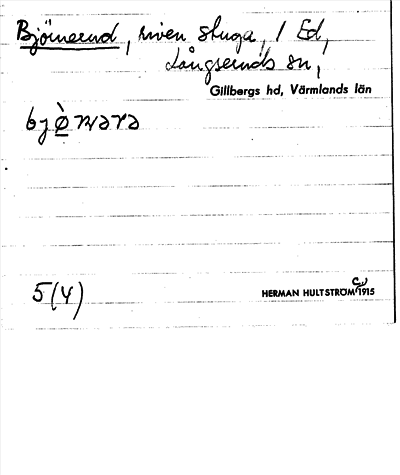 Björnerud, riven stuga, 1 Ed,
Långseruds sn,
Gillbergs hd, Värmlands län
5(4)
HERMAN HULTSTRÖM 1915